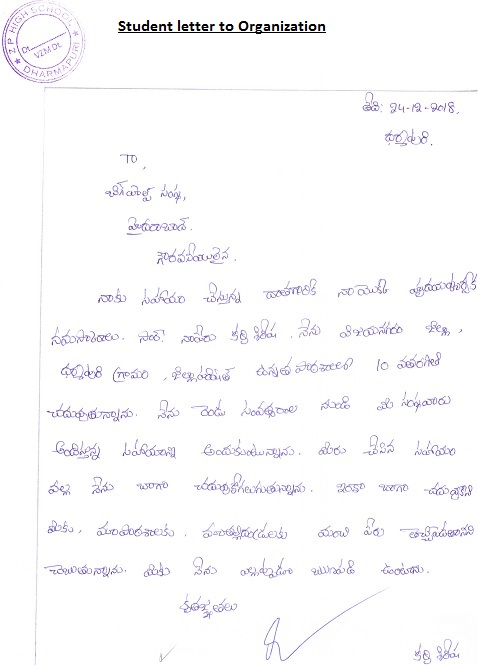 Student letter to Organization
Z P HIGH SCHOOL
Dt. VZM Dt.
DHARMAPURI
తేది: 24-12-2018,
ధర్మపురి.
TO,
సంస్థ,
హైదరాబాద్.
గౌరవనీయులైన.
నాకు సహాయం చేస్తున్న నాయొక్క హృదయపూర్వక
నమస్కారాలు. సార్! నాపేరు కర్రి శిరీష. నేను విజయనగరం జిల్లా,
ధర్మపురి గ్రామం, జిల్లాపరిషత్ ఉన్నత పాఠశాలలో 10 వతరగతి
చదువుతున్నాను. నేను రెండు సంవత్సరాల నుండి మీ సంస్థవారు
అందిస్తున్న సహాయాన్ని అందుకుంటున్నాను. మీరు చేసిన సహాయం
వల్ల నేను బాగా చదువుకోగలుగుతున్నాను. ఇంకా బాగా చదువుకొని
మీకు, మాపాఠశాలకు, మాతల్లిదండ్రులకు మంచి పేరు
చెబుతున్నాను. మీకు నేను ఎల్లప్పుడూ ఋణపడి ఉంటాను.
కృతజ్ఞతలు
కర్రి శిరీష